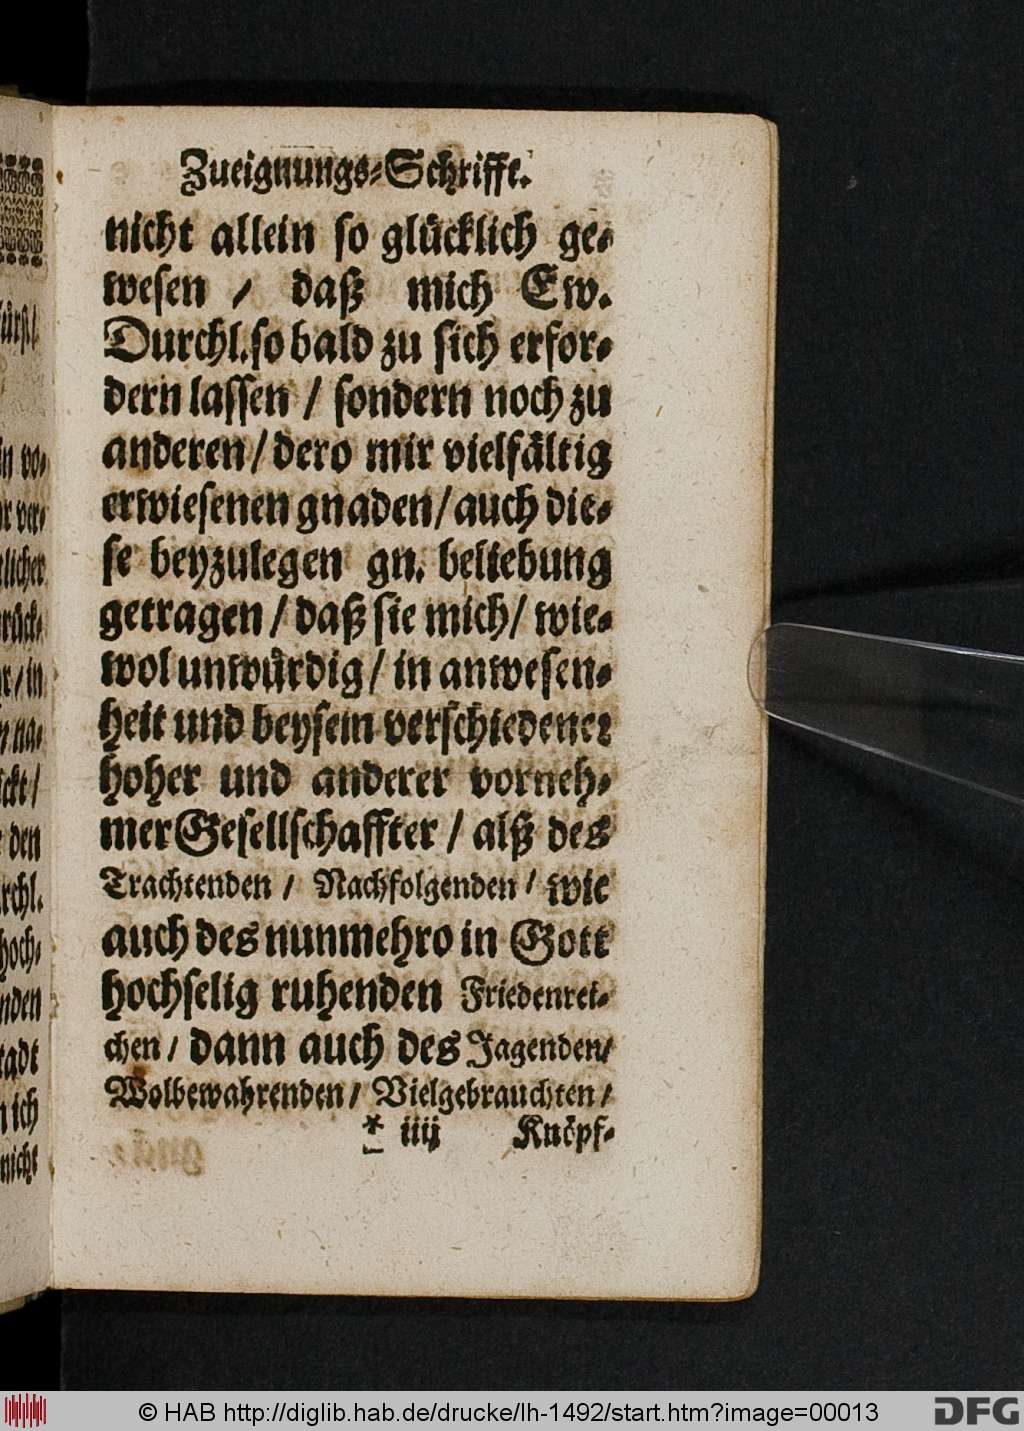 Zueignungs-Schrifft.
nicht allein so glücklich ge-
wesen / daß mich Ew.
Durchl. so bald zu sich erfor-
dern lassen / sondern noch zu
anderen / dero mir vielfältig
erwiesenen gnaden / auch die-
se beyzulegen gn. beliebung
getragen / daß sie mich / wie-
wol unwürdig / in anwesen-
heit und beysein verschiedener
hoher und anderer vorneh-
mer Gesellschaffter / alß des
Trachtenden / Nachfolgenden / wie
auch des nunmehro in Gott
hochselig ruhenden Friedenrei-
chen / dann auch des Jagenden /
Wolbewahrenden / Vielgebrauchten /
* iiij Knöpf-
© HAB http://diglib.hab.de/drucke/lh-1492/start.htm?image=00013
DFG